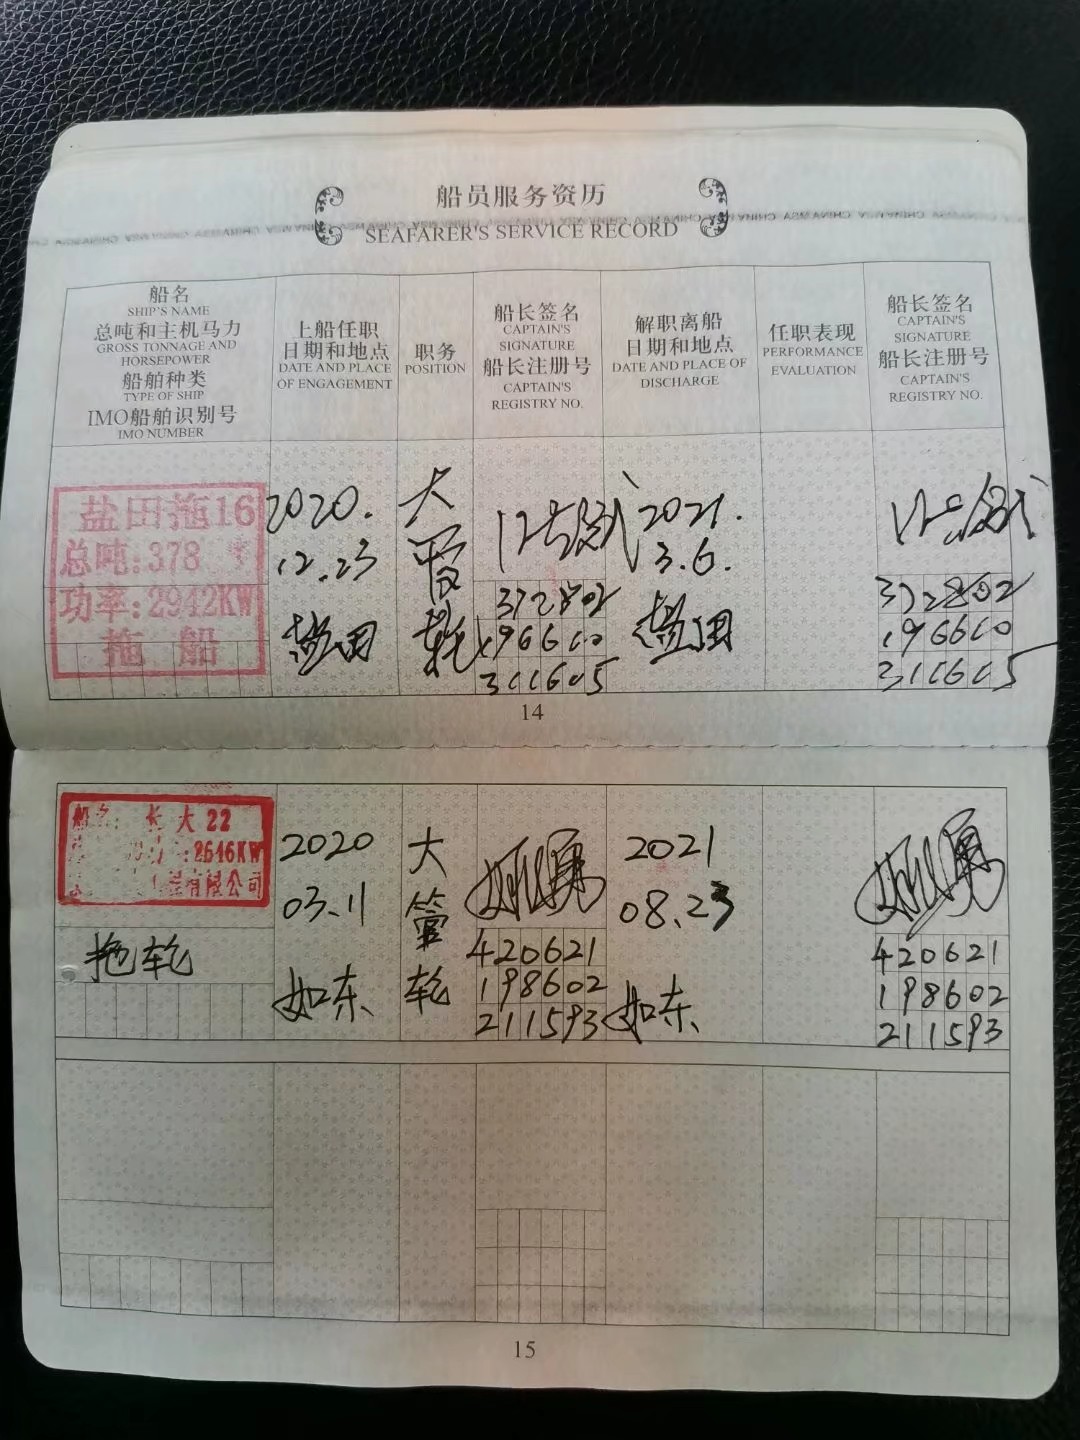 船员服务资历
SEAFARER'S SERVICE RECORD
船名
SHIP'S NAME
总吨和主机马力
GROSS TONNAGE AND
HORSEPOWER
船舶种类
TYPE OF SHIP
IMO船舶识别号
IMO NUMBER
上船任职
日期和地点
DATE AND PLACE
OF ENGAGEMENT
职务
POSITION
船长签名
CAPTAIN'S
SIGNATURE
船长注册号
CAPTAIN'S
REGISTRY NO.
解职离船
日期和地点
DATE AND PLACE OF
DISCHARGE
任职表现
PERFORMANCE
EVALUATION
船长签名
CAPTAIN'S
SIGNATURE
船长注册号
CAPTAIN'S
REGISTRY NO.
盐田拖16
总吨:378
功率:2942KW
拖 船
2020.
12.23
盐田
大
管
轮
372802
196610
311605
2021.
3.6.
盐田
372802
196610
311605
14
船名: 长大22
:2646KW
有限公司
拖轮
2020
03.11
如东
大
管
轮
420621
198602
211593
2021
08.23
如东
420621
198602
211593
15